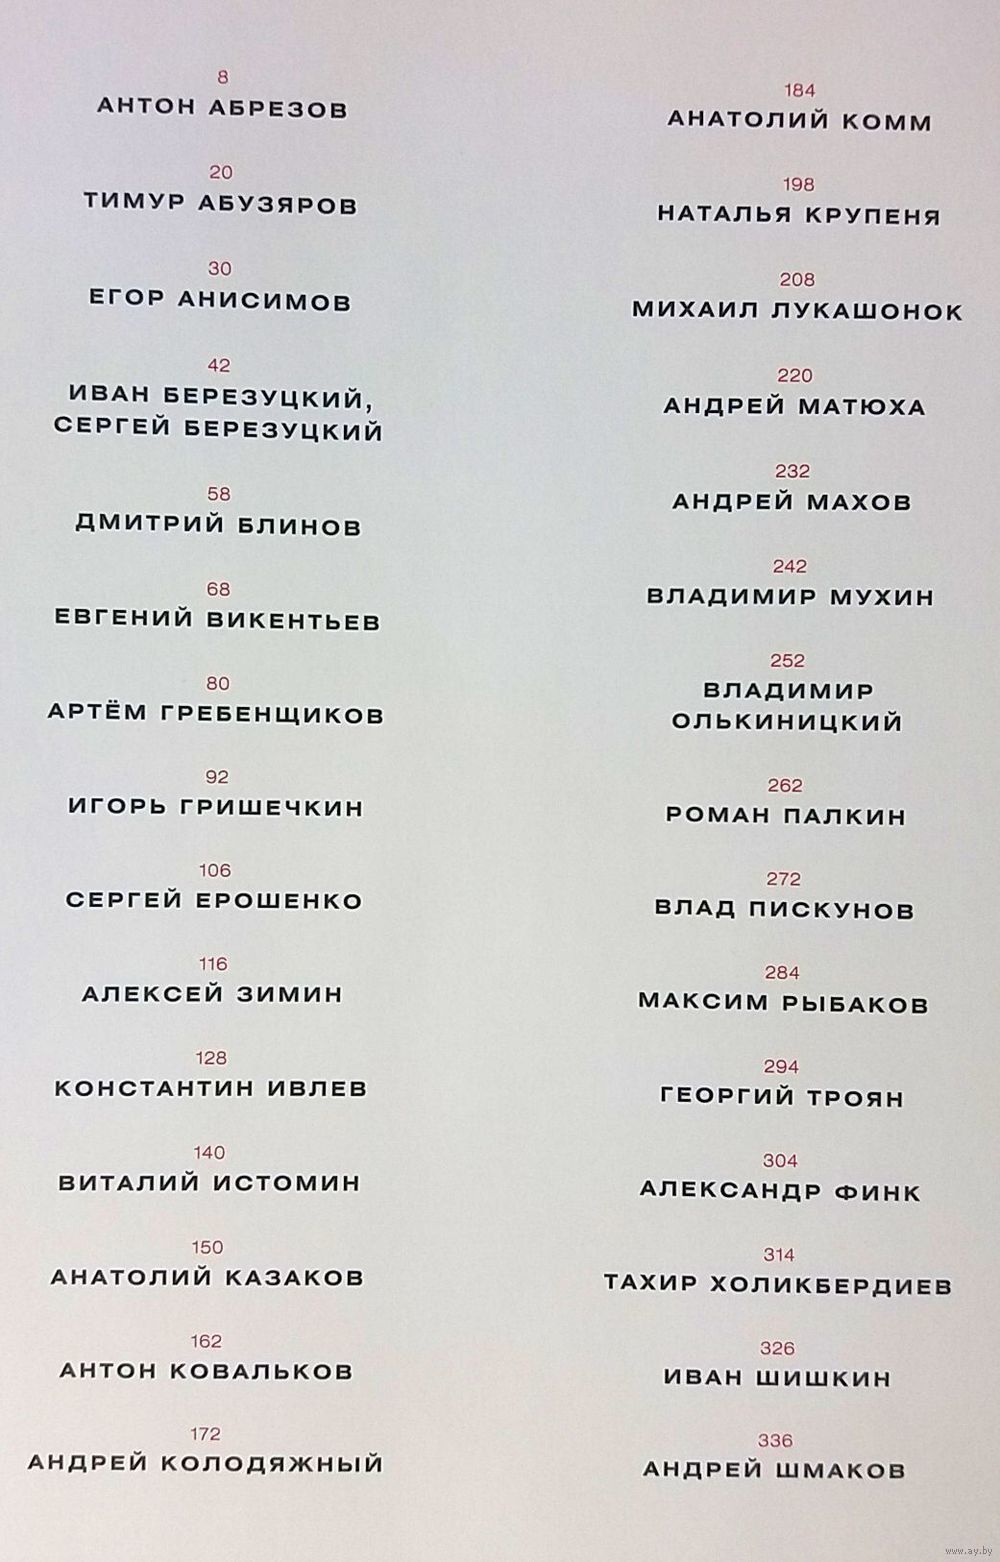 8
АНТОН АБРЕЗОВ
20
ТИМУР АБУЗЯРОВ
30
ЕГОР АНИСИМОВ
42
ИВАН БЕРЕЗУЦКИЙ,
СЕРГЕЙ БЕРЕЗУЦКИЙ
58
ДМИТРИЙ БЛИНОВ
68
ЕВГЕНИЙ ВИКЕНТЬЕВ
80
АРТЁМ ГРЕБЕНЩИКОВ
92
ИГОРЬ ГРИШЕЧКИН
106
СЕРГЕЙ ЕРОШЕНКО
116
АЛЕКСЕЙ ЗИМИН
128
КОНСТАНТИН ИВЛЕВ
140
ВИТАЛИЙ ИСТОМИН
150
АНАТОЛИЙ КАЗАКОВ
162
АНТОН КОВАЛЬКОВ
172
АНДРЕЙ КОЛОДЯЖНЫЙ
184
АНАТОЛИЙ КОММ
198
НАТАЛЬЯ КРУПЕНЯ
208
МИХАИЛ ЛУКАШОНОК
220
АНДРЕЙ МАТЮХА
232
АНДРЕЙ МАХОВ
242
ВЛАДИМИР МУХИН
252
ВЛАДИМИР
ОЛЬКИНИЦКИЙ
262
РОМАН ПАЛКИН
272
ВЛАД ПИСКУНОВ
284
МАКСИМ РЫБАКОВ
294
ГЕОРГИЙ ТРОЯН
304
АЛЕКСАНДР ФИНК
314
ТАХИР ХОЛИКБЕРДИЕВ
326
ИВАН ШИШКИН
336
АНДРЕЙ ШМАКОВ
www.ay.by